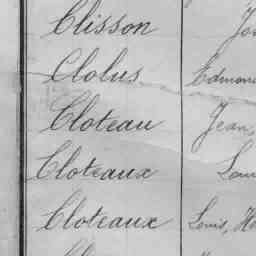 Clisson
Clolus Edmon
Cloteau Jean,
Cloteaux
Cloteaux Louis, He